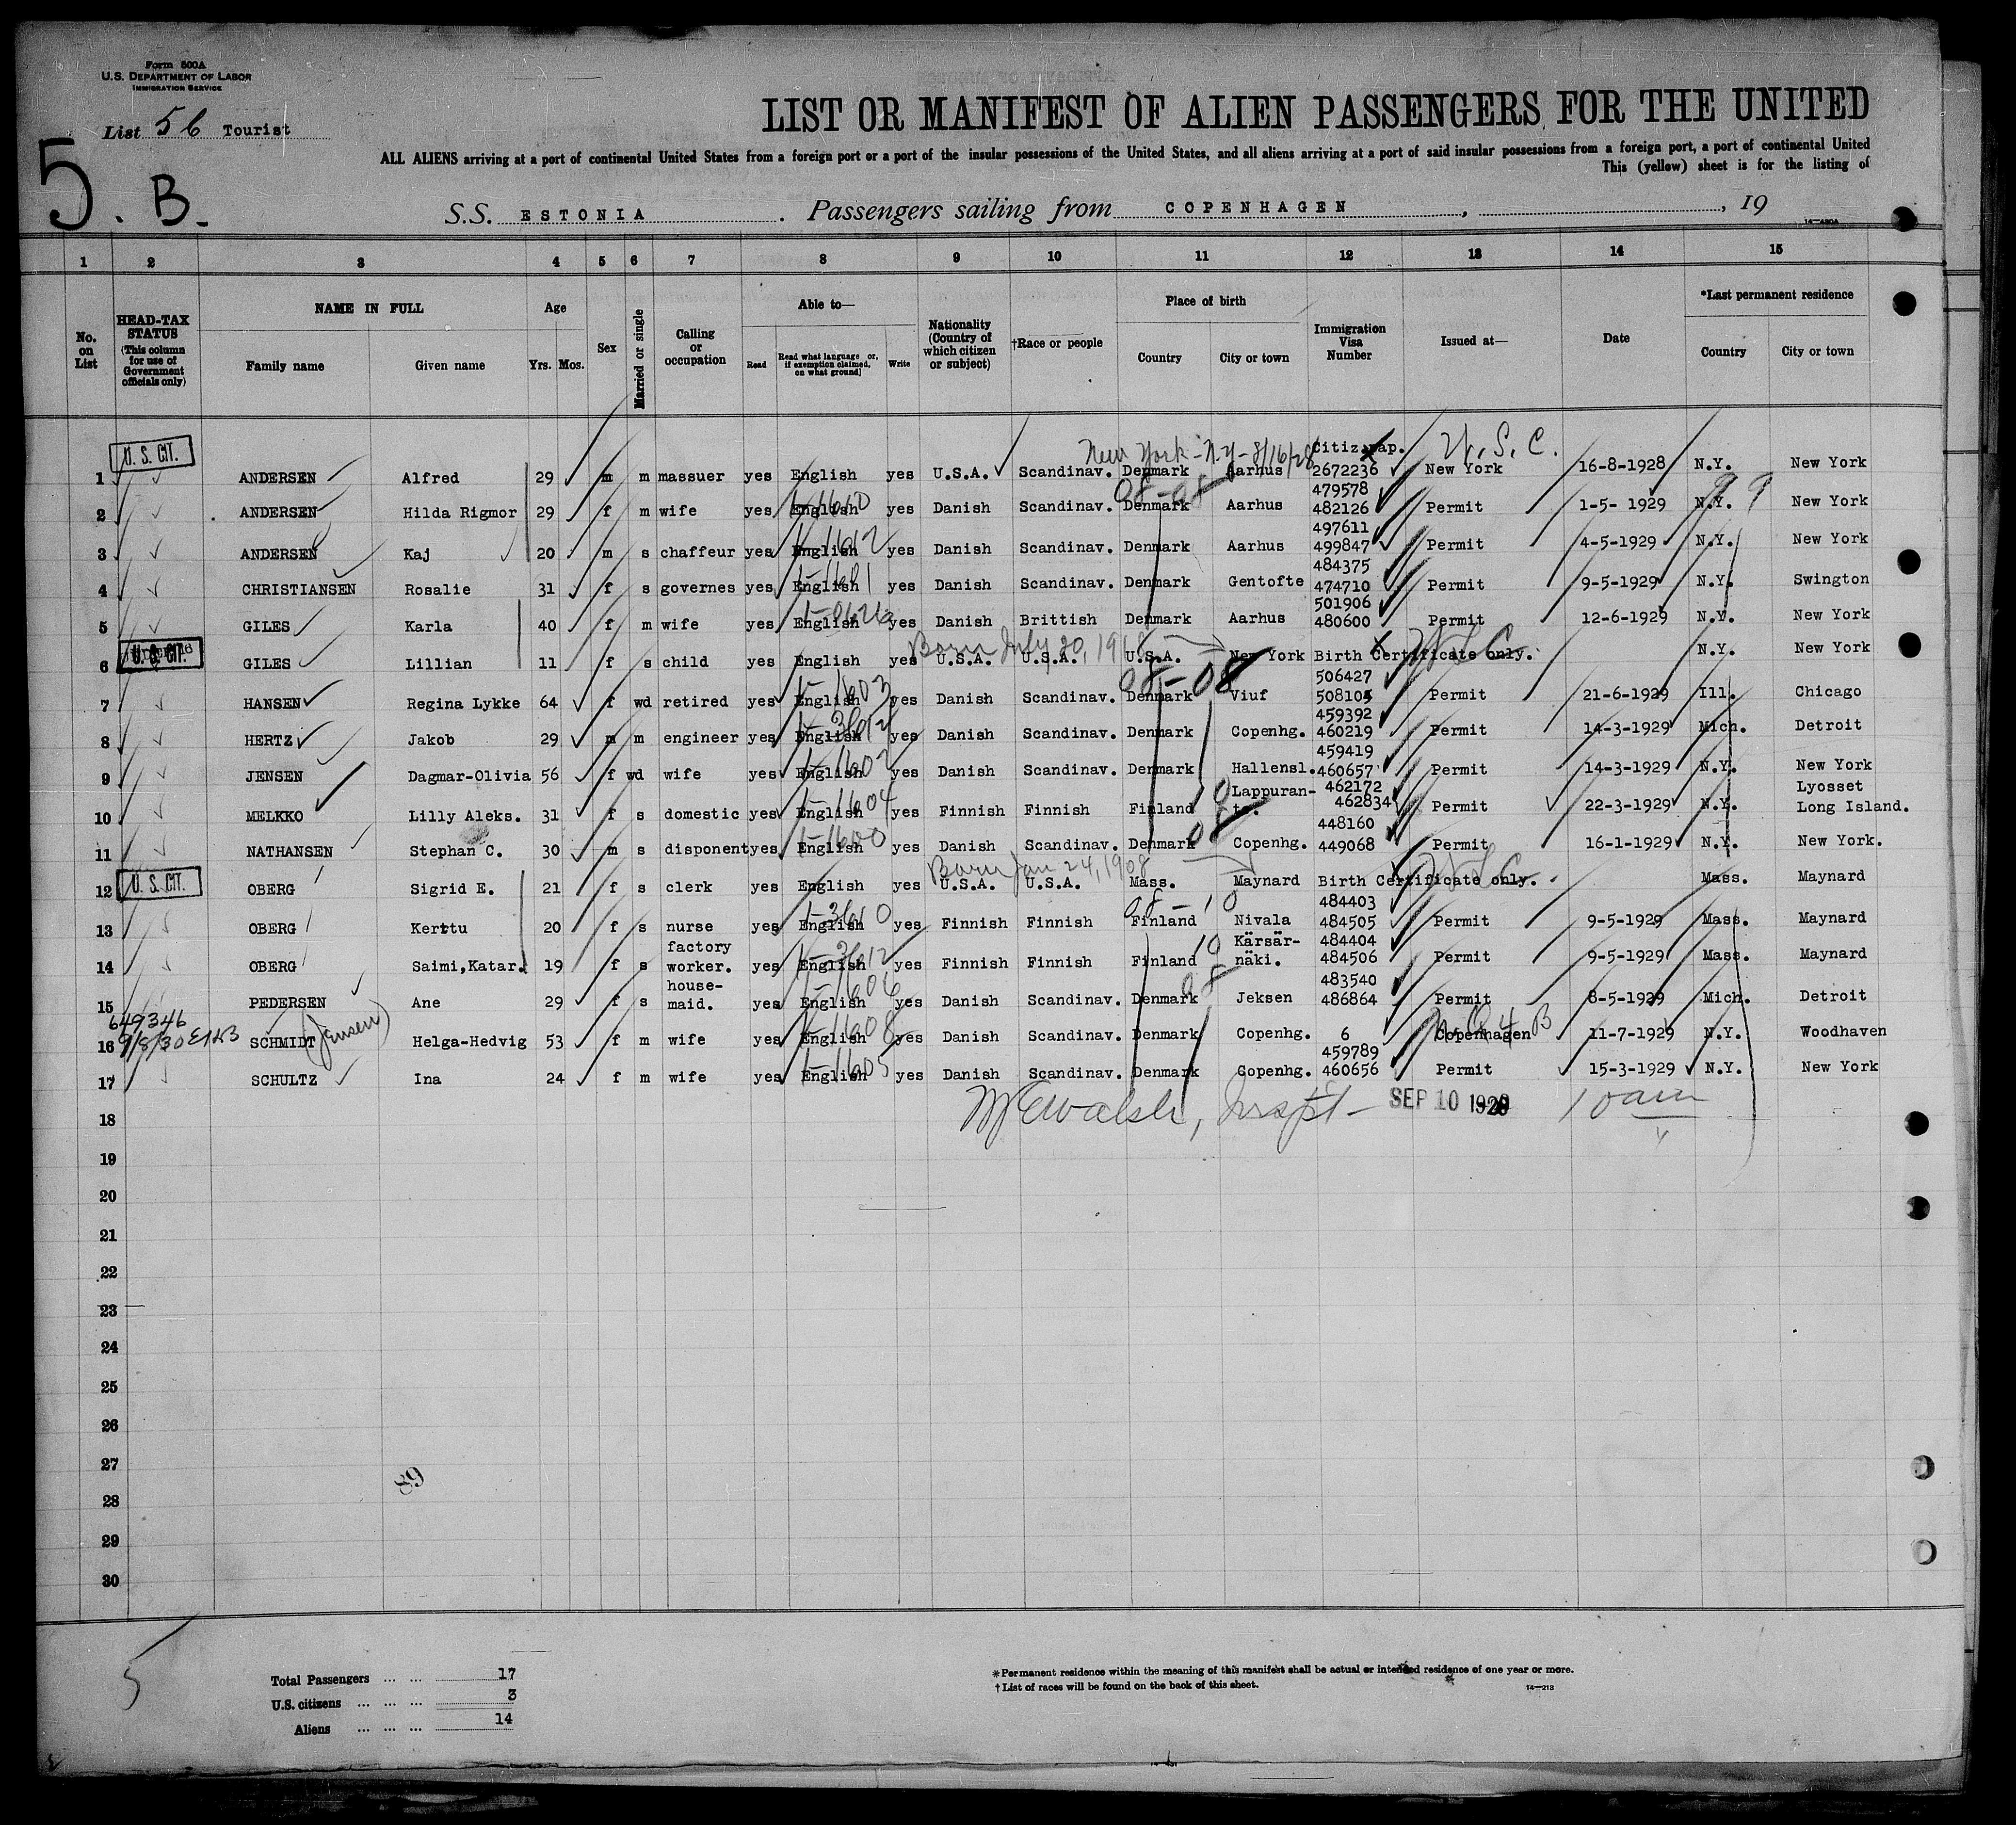 Form 500A
U.S. DEPARTMENT OF LABOR
IMMIGRATION SERVICE
List 5b Tourist
5. B.
LIST OR MANIFEST OF ALIEN PASSENGERS FOR THE UNITED
ALL ALIENS arriving at a port of continental United States from a foreign port or a port of the insular possessions of the United States, and all aliens arriving at a port of said insular possessions from a foreign port, a port of continental United
This (yellow) sheet is for the listing of
S.S. ESTONIA . Passengers sailing from COPENHAGEN , , 19
14—480A
1 2 3 4 5 6 7 8 9 10 11 12 13 14 15
No. on List
HEAD-TAX STATUS (This column for use of Government officials only)
NAME IN FULL
Family name Given name
Age
Yrs. Mos.
Sex
Married or single
Calling or occupation
Able to—
Read
Read what language or, if exemption claimed, on what ground]
Write
Nationality (Country of which citizen or subject)
†Race or people
Place of birth
Country City or town
Immigration Visa Number
Issued at—
Date
*Last permanent residence
Country City or town
U. S. CIT. New York - N.Y - 8/16/28 Citiz.pap. U. S. C.
1 ANDERSEN Alfred 29 m m massuer yes English yes U.S.A. Scandinav. Denmark Aarhus 2672236 New York 16-8-1928 N.Y. New York
479578
2 ANDERSEN Hilda Rigmor 29 f m wife yes English yes Danish Scandinav. Denmark Aarhus 482126 Permit 1-5- 1929 N.Y. New York
497611
3 ANDERSEN Kaj 20 m s chaffeur yes English yes Danish Scandinav. Denmark Aarhus 499847 Permit 4-5-1929 N.Y. New York
484375
4 CHRISTIANSEN Rosalie 31 f s governes yes English yes Danish Scandinav. Denmark Gentofte 474710 Permit 9-5-1929 N.Y. Swington
501906
5 GILES Karla 40 f m wife yes English yes Danish Brittish Denmark Aarhus 480600 Permit 12-6-1929 N.Y. New York
U. S. CIT. Born July 20, 1918
6 GILES Lillian 11 f s child yes English yes U.S.A. U.S.A. U.S.A. New York Birth Certificate only. N.Y. New York
506427
7 HANSEN Regina Lykke 64 f wd retired yes English yes Danish Scandinav. Denmark Viuf 508105 Permit 21-6-1929 Ill. Chicago
459392
8 HERTZ Jakob 29 m m engineer yes English yes Danish Scandinav. Denmark Copenhg. 460219 Permit 14-3-1929 Mich. Detroit
459419
9 JENSEN Dagmar-Olivia 56 f wd wife yes English yes Danish Scandinav. Denmark Hallensl. 460657 Permit 14-3-1929 N.Y. New York
Lappuran- 462172 Lyosset
10 MELKKO Lilly Aleks. 31 f s domestic yes English yes Finnish Finnish Finland ta. 462834 Permit 22-3-1929 N.Y. Long Island.
448160
11 NATHANSEN Stephan C. 30 m s disponent yes English yes Danish Scandinav. Denmark Copenhg. 449068 Permit 16-1-1929 N.Y. New York.
U. S. CIT. Born Jan 24, 1908
12 OBERG Sigrid E. 21 f s clerk yes English yes U.S.A. U.S.A. Mass. Maynard Birth Certificate only. Mass. Maynard
484403
13 OBERG Kerttu 20 f s nurse yes English yes Finnish Finnish Finland Nivala 484505 Permit 9-5-1929 Mass. Maynard
factory Kärsär- 484404
14 OBERG Saimi,Katar. 19 f s worker. yes English yes Finnish Finnish Finland näki. 484506 Permit 9-5-1929 Mass. Maynard
house- 483540
15 PEDERSEN Ane 29 f s maid. yes English yes Danish Scandinav. Denmark Jeksen 486864 Permit 8-5-1929 Mich. Detroit
649346
16 9/8/30 SCHMIDT (Jensen) Helga-Hedvig 53 f m wife yes English yes Danish Scandinav. Denmark Copenhg. 6 Copenhagen 11-7-1929 N.Y. Woodhaven
459789
17 SCHULTZ Ina 24 f m wife yes English yes Danish Scandinav. Denmark Copenhg. 460656 Permit 15-3-1929 N.Y. New York
Walsh, Inspt - SEP 10 1929 10 am
18
19
20
21
22
23
24
25
26
27
28
29
30
89
5
Total Passengers ... ... 17
U.S. citizens ... ... ... 3
Aliens ... ... ... 14
*Permanent residence within the meaning of this manifest shall be actual or intended residence of one year or more.
†List of races will be found on the back of this sheet.
14—213